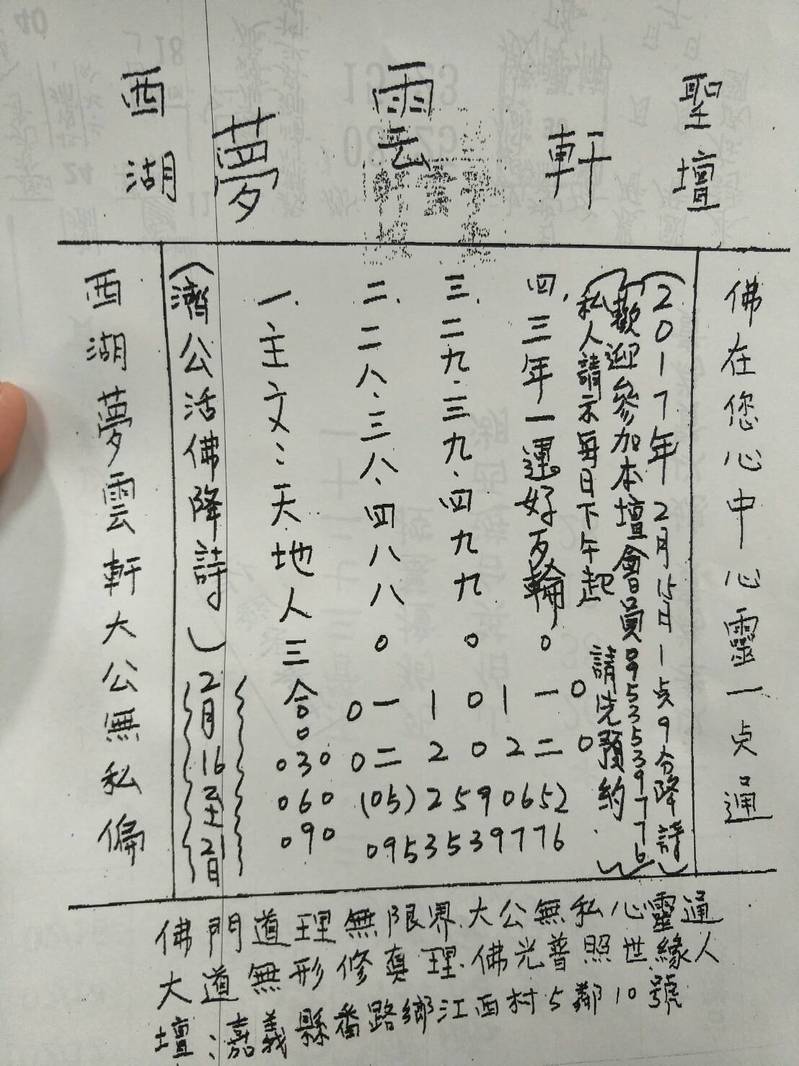 西湖夢雲軒聖壇
佛在您心中心靈一点通
(2017年2月15日1点9分降詩)
歡迎參加本壇會員0953539776
私人請示每日下午起 請先預約.
四,三年一運好不輪。
三.二九.三九.四九九。
二.二八.三八.四八八。
一.主文:天地人三合。
0一101一0
0二202二0
030
(05)2590652
060
0953539776
090
(濟公活佛降詩)
2月16至2日
西湖夢雲軒大公無私偏
佛門道理無限界大公無私心靈通
大道無形修真理.佛光普照世緣人
壇:嘉義縣番路鄉江西村5鄰10號